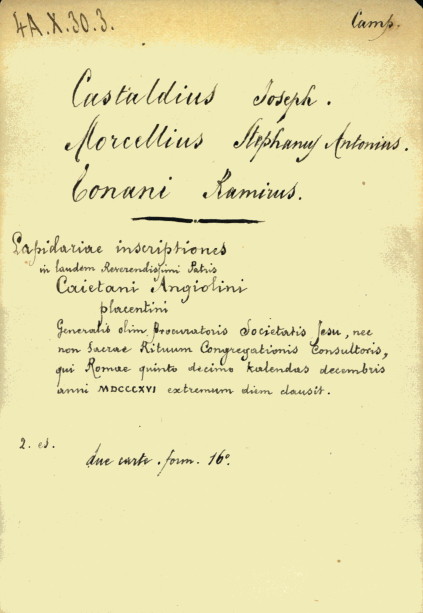 4A.X.30.3.
Camp.
Castaldius Joseph.
Morcellius Stephanus Antonius.
Tonani Ramirus.
Lapidariae inscriptiones
in laudem Reverendissimi Patris
Caietani Angiolini
placentini
Generalis olim Procuratoris Societatis Jesu, nec
non Sacrae Rituum Congregationis Consultoris,
qui Romae quinto decimo kalendas decembris
anni MDCCCXVI extremum diem clausit.
2. es.
due carte. form. 16°.